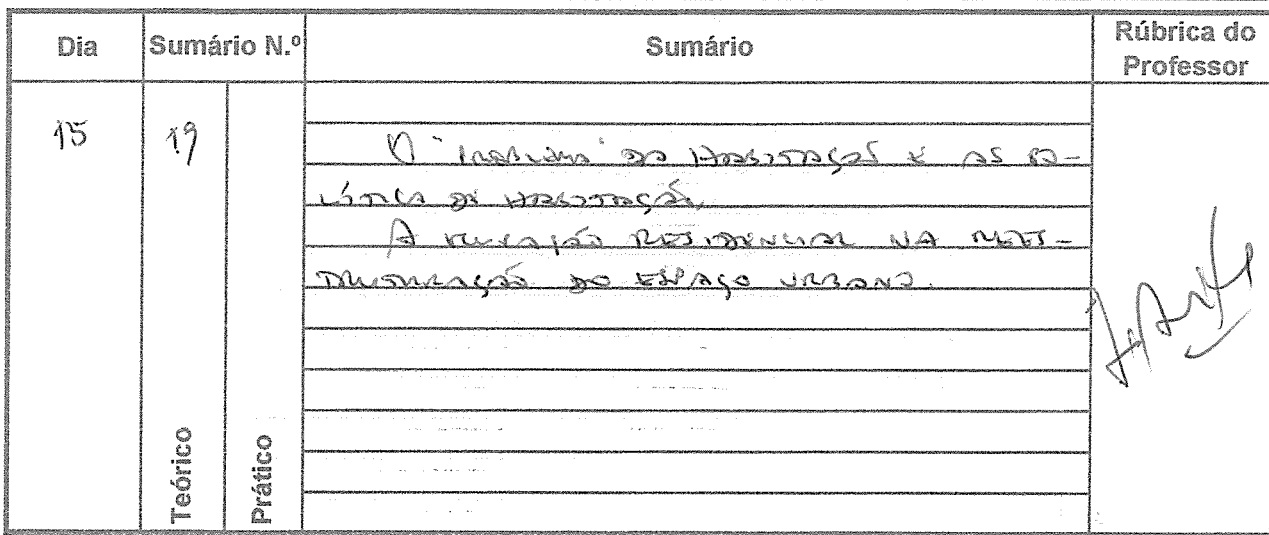 Dia Sumário N.º Sumário Rúbrica do Professor
15 19
O "problema" da Habitação e as po-
lítica de Habitação.
A função residencial na rees-
truturação do espaço urbano.
Teórico Prático